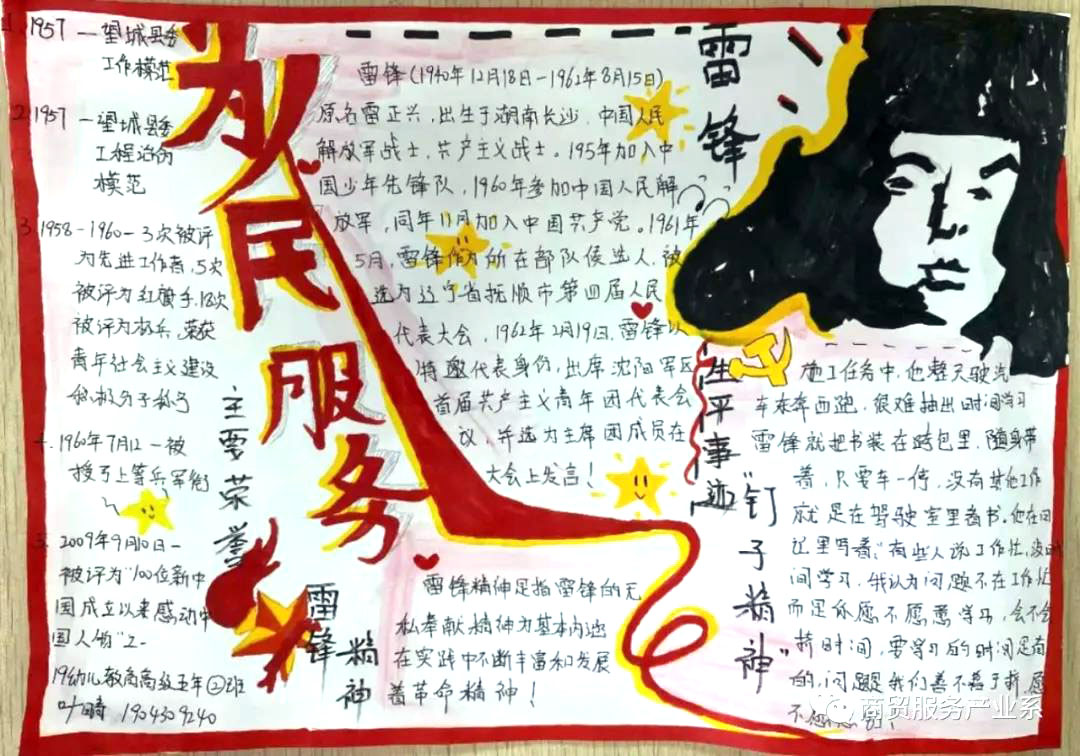 1. 1957 — 望城县委
工作模范
2. 1957 — 望城县委
工程治沩
模范
3. 1958-1960 — 3次被评
为先进工作者, 5次
被评为红旗手, 18次
被评为标兵, 荣获
青年社会主义建设
积极分子称号
4. 1960年7月12 — 被
授予上等兵军衔
5. 2009年9月10日 —
被评为"100位新中
国成立以来感动中
国人物"之一
19幼儿教育高级五年②班
叶畸 1904309240
主要荣誉
为民服务
雷锋(1940年12月18日-1962年8月15日)
原名雷正兴, 出生于湖南长沙, 中国人民
解放军战士, 共产主义战士。195年加入中
国少年先锋队, 1960年参加中国人民解
放军, 同年11月加入中国共产党。1961年
5月, 雷锋作为所在部队候选人, 被
选为辽宁省抚顺市第四届人民
代表大会, 1962年2月19日, 雷锋以
特邀代表身份, 出席沈阳军区
首届共产主义青年团代表会
议, 并选为主席团成员在
大会上发言!
雷锋
生平事迹
雷锋
精神
雷锋精神是指雷锋的无
私奉献精神为基本内涵
在实践中不断丰富和发展
着革命精神!
"钉子精神"
施工任务中, 他整天驶汽
车东奔西跑, 很难抽出时间学习
雷锋就把书装在跨包里, 随身带
着, 只要车一停, 没有其他工作
就是在驾驶室里看书。他在日
记里写着, "有些人说工作忙, 没时
间学习, 我认为问题不在工作忙
而是你愿不愿意学习, 会不会
挤时间, 要学习的时间是有
的, 问题是我们善不善于挤, 愿
不愿意
商贸服务产业系